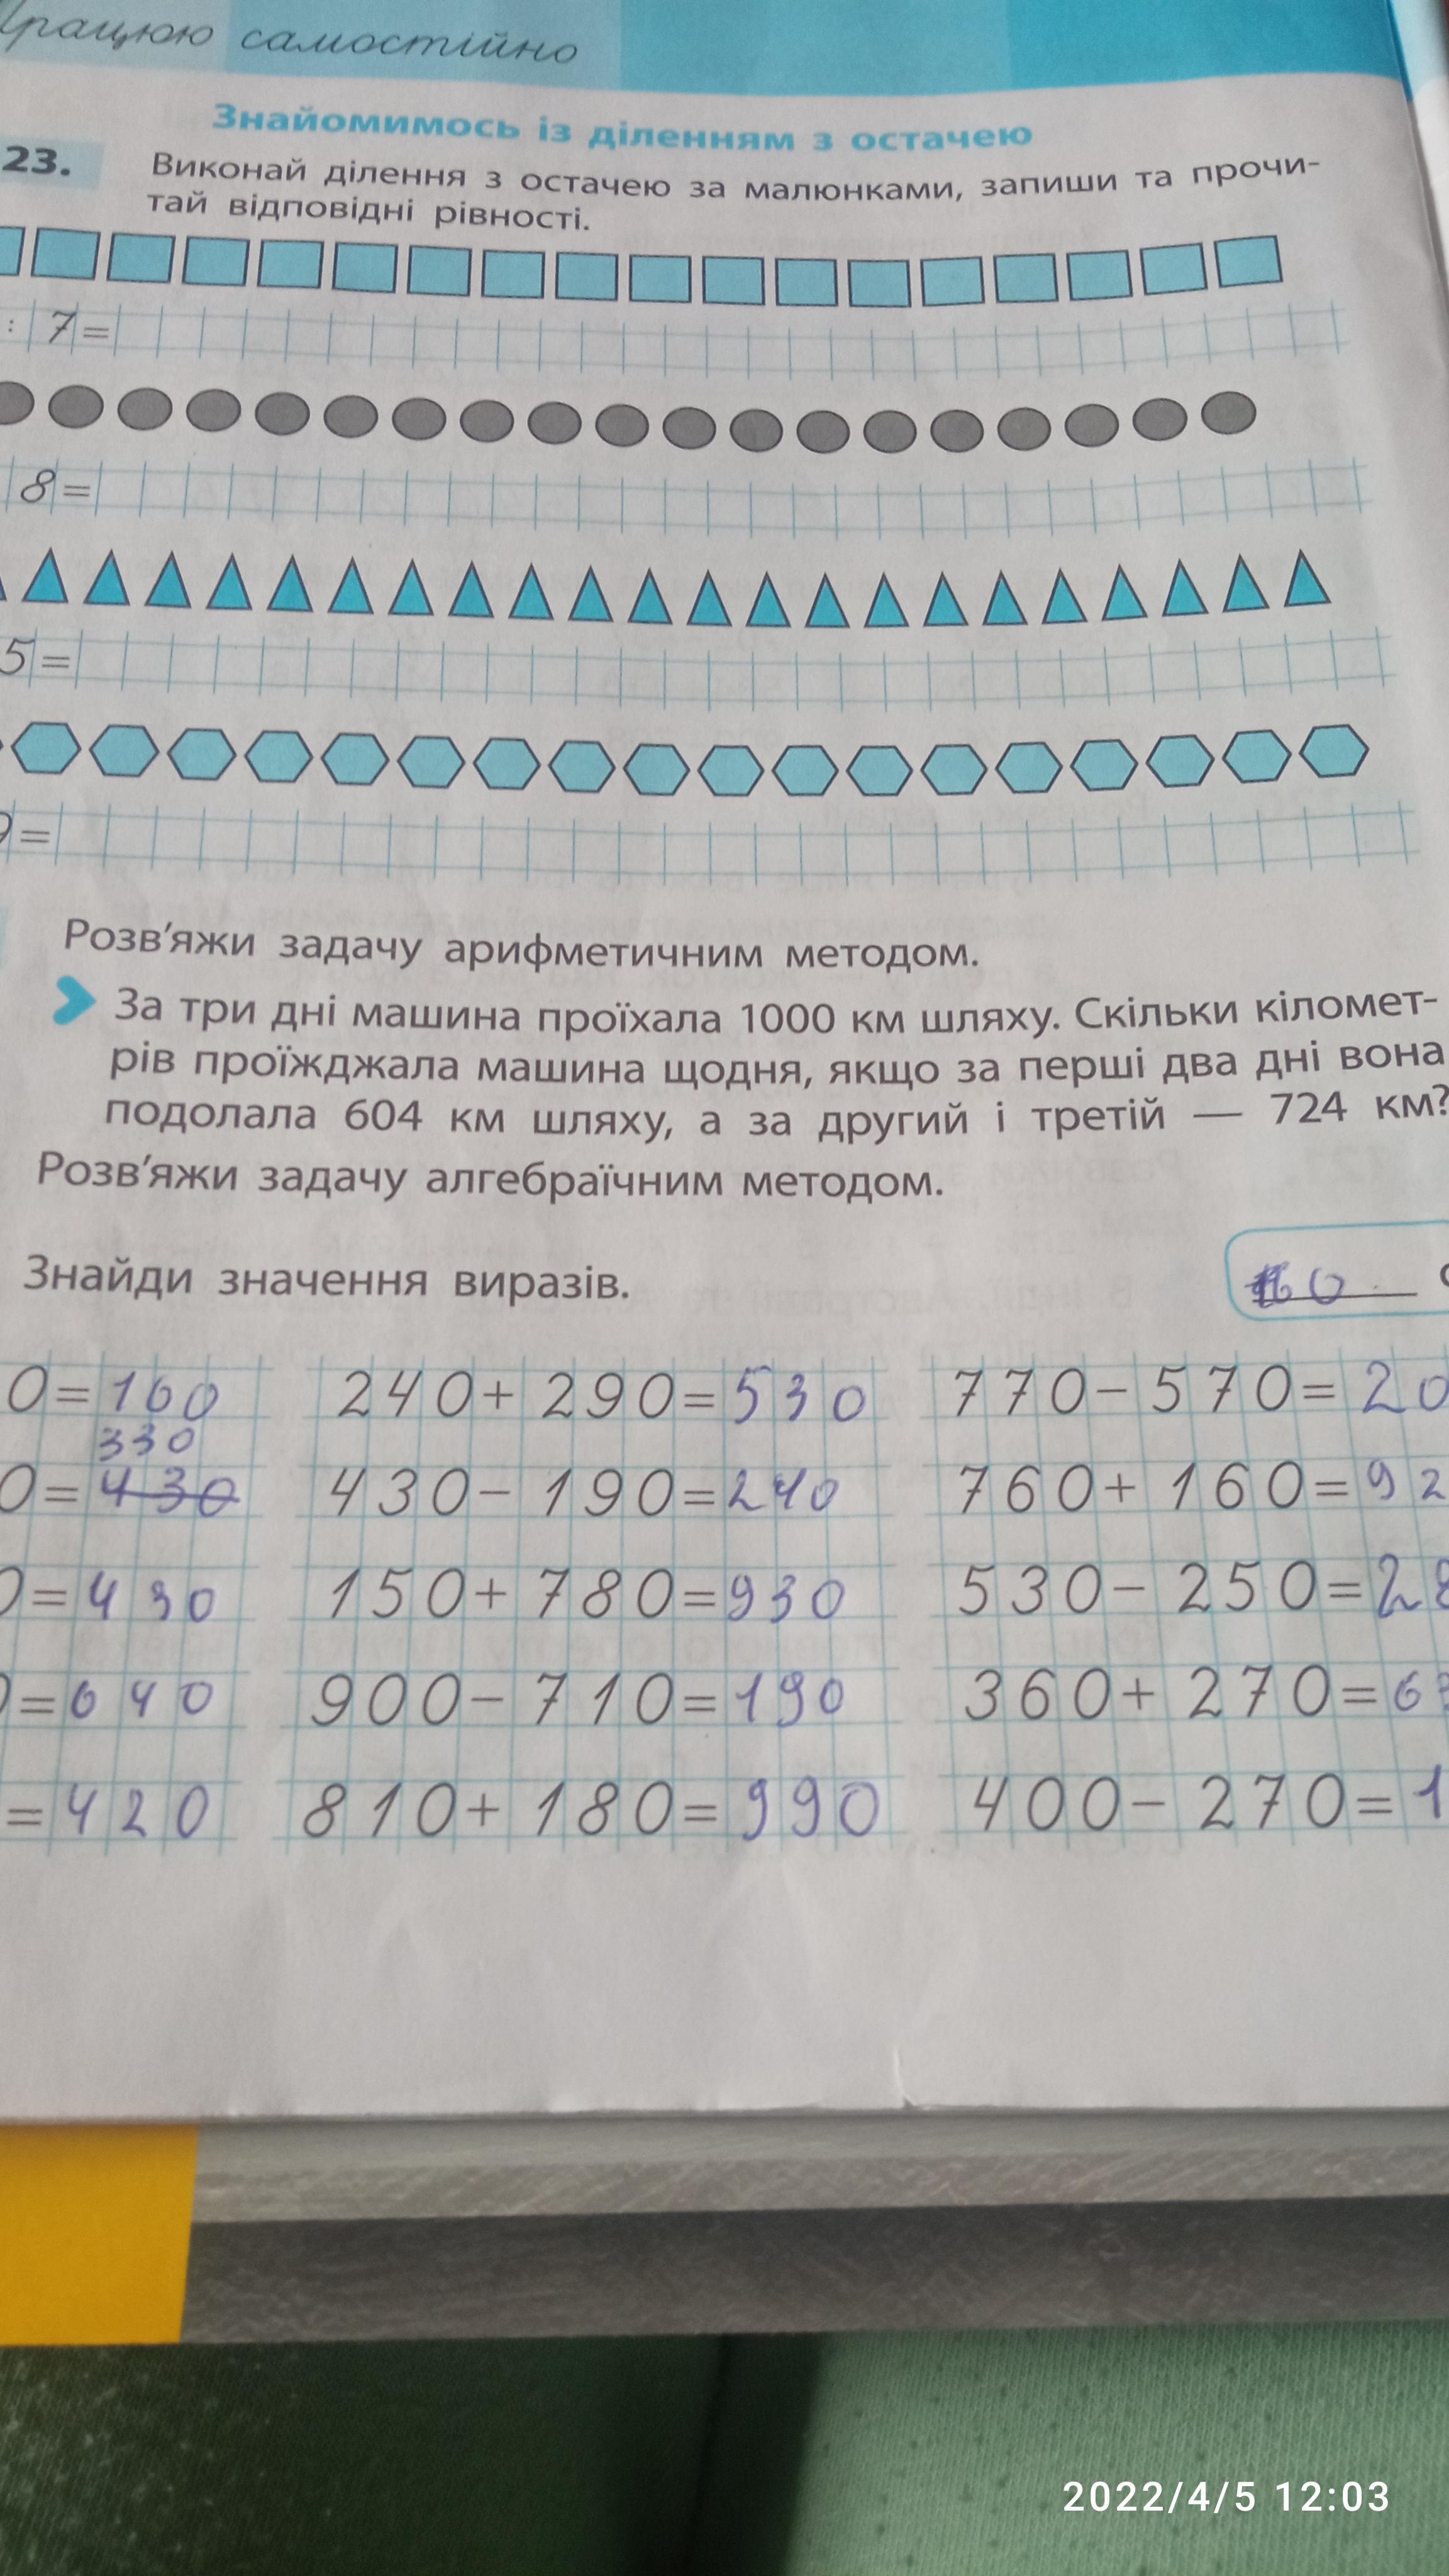 Працюю самостійно
Знайомимось із діленням з остачею
23. Виконай ділення з остачею за малюнками, запиши та прочи-
тай відповідні рівності.
: 7=
8=
5=
9=
Розв'яжи задачу арифметичним методом.
За три дні машина проїхала 1000 км шляху. Скільки кіломет-
рів проїжджала машина щодня, якщо за перші два дні вона
подолала 604 км шляху, а за другий і третій — 724 км?
Розв'яжи задачу алгебраїчним методом.
Знайди значення виразів.
0=160 240+290=530 770-570=20
330
0=430 430-190=240 760+160=92
0=430 150+780=930 530-250=28
0=640 900-710=190 360+270=63
=420 810+180=990 400-270=1
2022/4/5 12:03